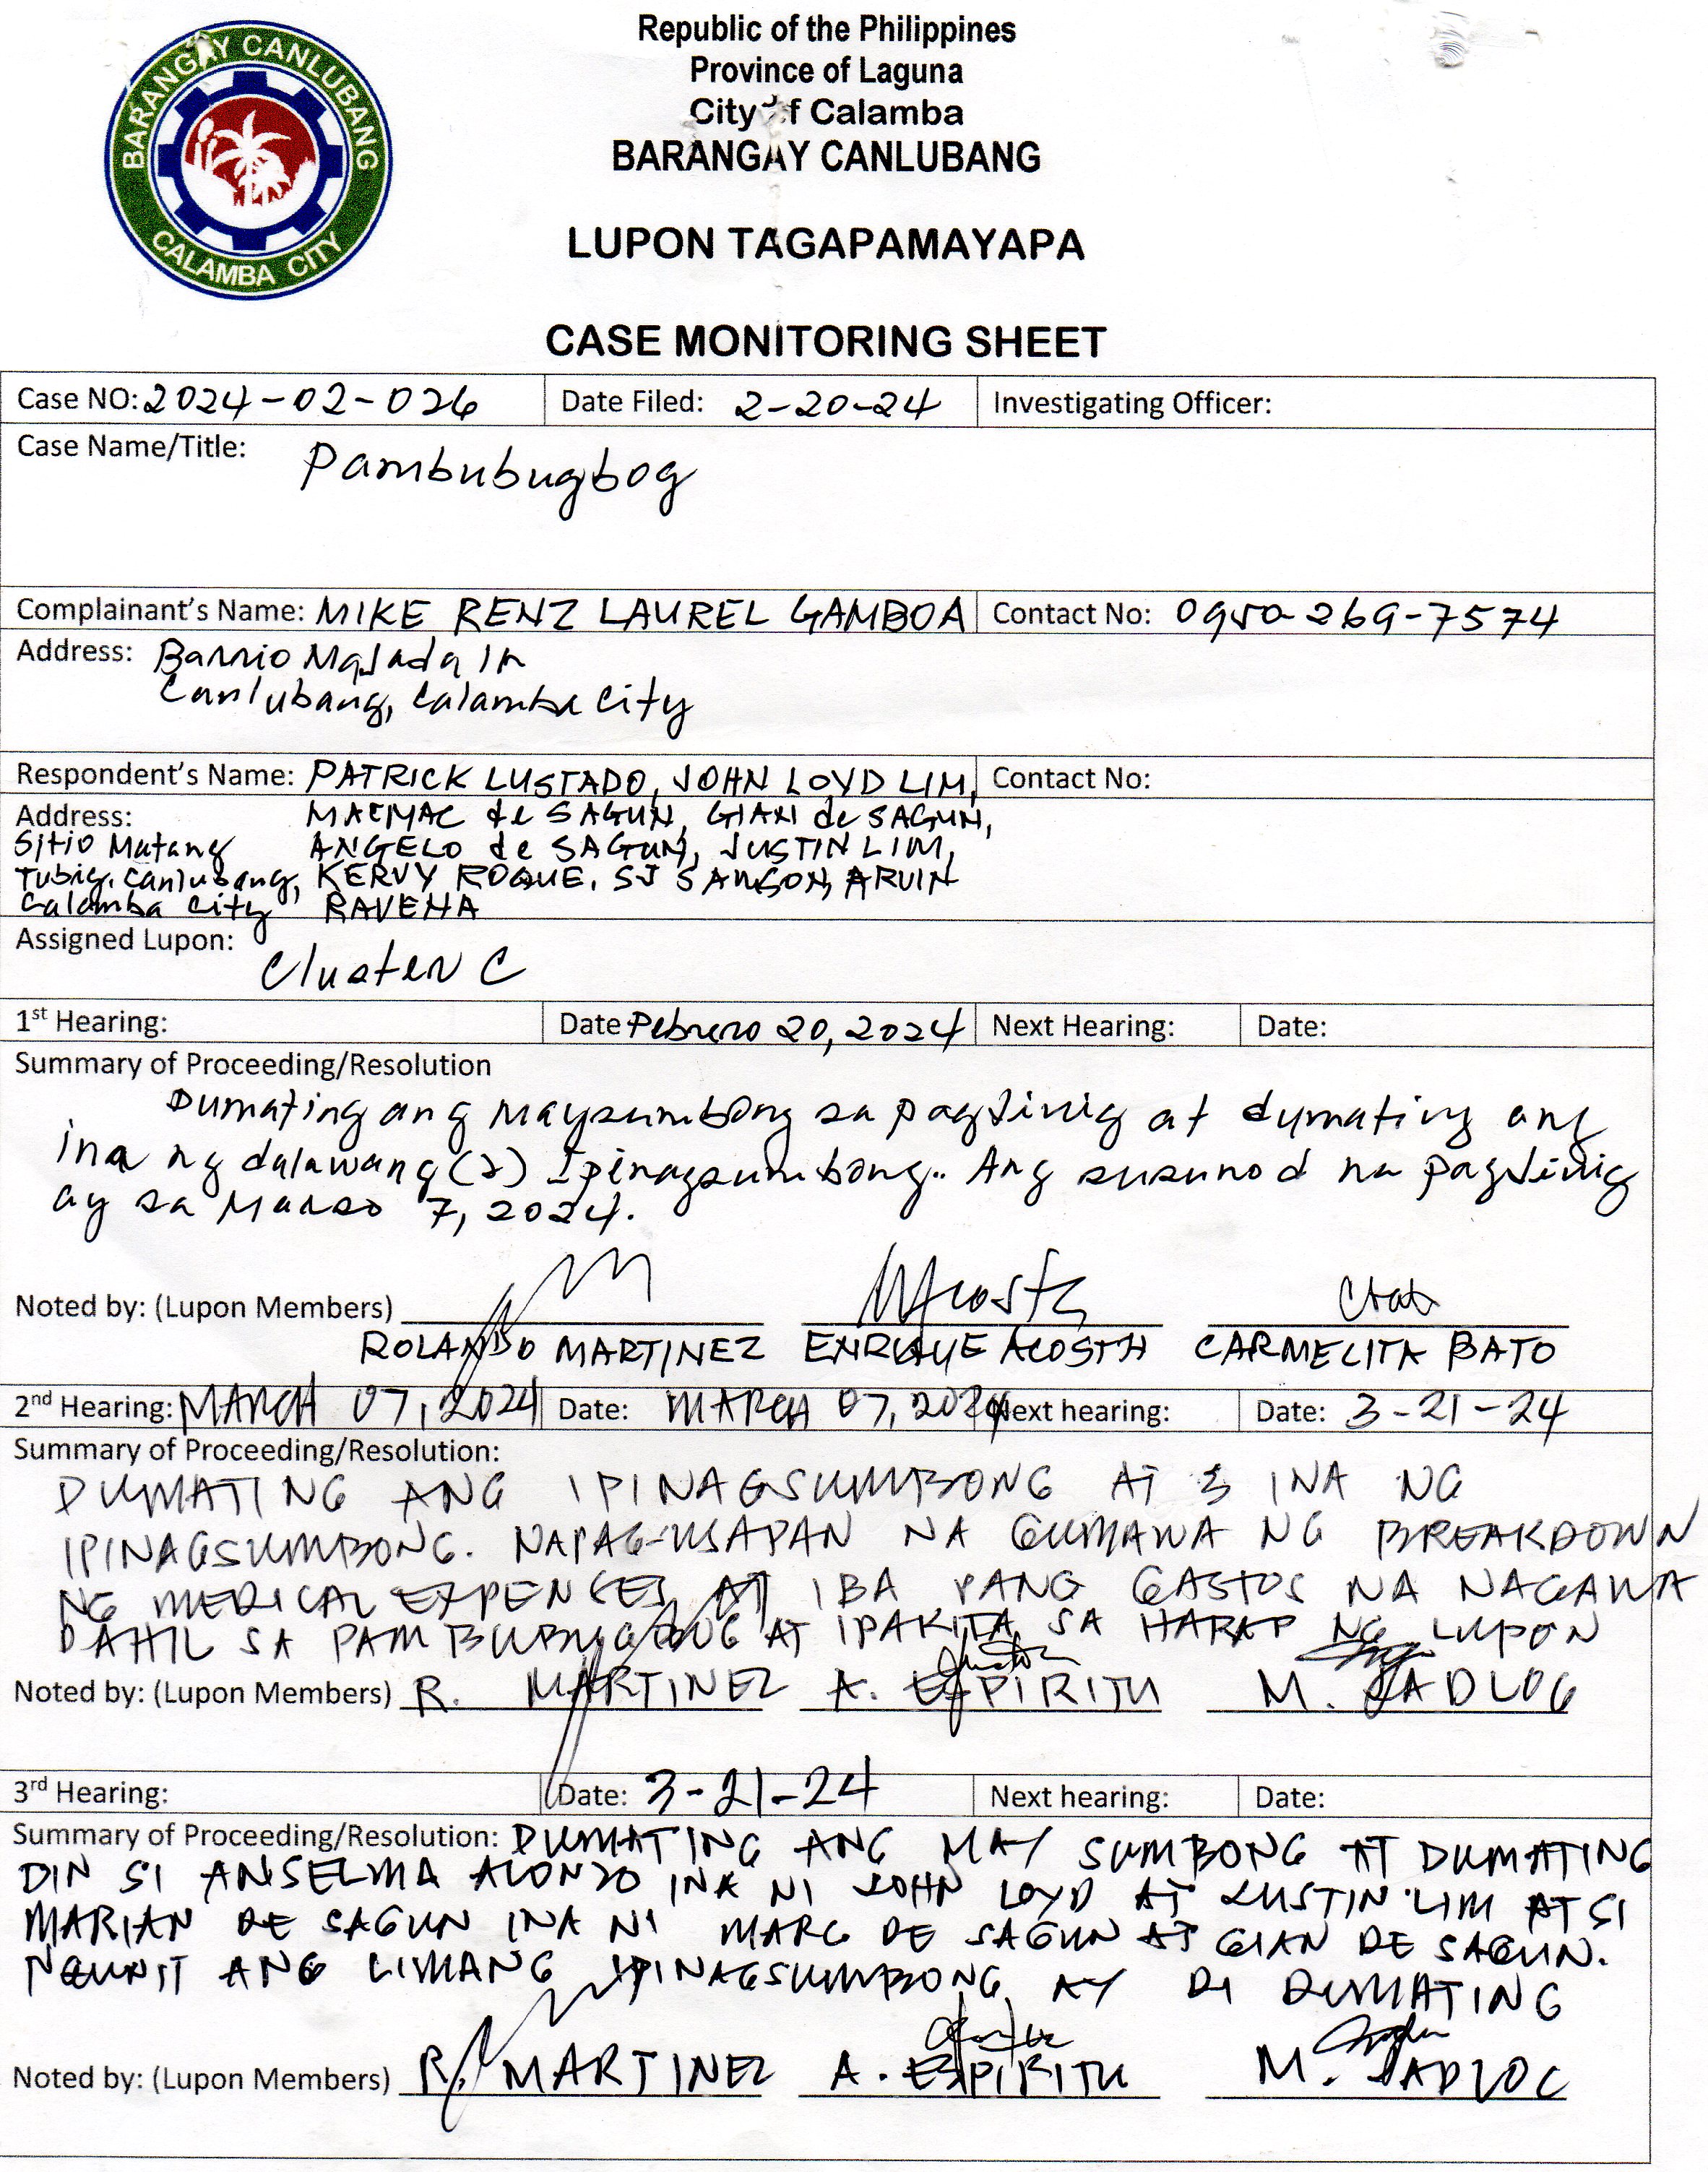 BARANGAY CANLUBANG
CALAMBA CITY
Republic of the Philippines
Province of Laguna
City of Calamba
BARANGAY CANLUBANG
LUPON TAGAPAMAYAPA
CASE MONITORING SHEET
Case NO: 2024-02-026 Date Filed: 2-20-24 Investigating Officer:
Case Name/Title: Pambubugbog
Complainant's Name: MIKE RENZ LAUREL GAMBOA Contact No: 0950-269-7574
Address: Barrio Majada In
Canlubang, Calamba City
Respondent's Name: PATRICK LUSTADO, JOHN LOYD LIM, Contact No:
Address: MACMAC de SAGUN, GIAN de SAGUN,
Sitio Matang ANGELO de SAGUN, JUSTIN LIM,
Tubig, Canlubang, KERVY ROQUE, SJ SAMSON, ARVIN
Calamba City RAVENA
Assigned Lupon: Cluster C
1st Hearing: Date Pebrero 20, 2024 Next Hearing: Date:
Summary of Proceeding/Resolution
Dumating ang maysumbong sa pagdinig at dumating ang
ina ng dalawang (2) Ipinagsumbong. Ang susunod na pagdinig
ay sa Marso 7, 2024.
Noted by: (Lupon Members)
ROLANDO MARTINEZ ENRIQUE ACOSTA CARMELITA BATO
2nd Hearing: MARCH 07, 2024 Date: MARCH 07, 2024 Next hearing: Date: 3-21-24
Summary of Proceeding/Resolution:
DUMATING ANG IPINAGSUMBONG AT 3 INA NG
IPINAGSUMBONG. NAPAG-USAPAN NA GUMAWA NG BREAKDOWN
NG MEDICAL EXPENSES AT IBA PANG GASTOS NA NAGAWA
DAHIL SA AT IPAKITA SA HARAP NG LUPON
Noted by: (Lupon Members) R. MARTINEZ A. ESPIRITU M. JADLOG
3rd Hearing: Date: 3-21-24 Next hearing: Date:
Summary of Proceeding/Resolution: DUMATING ANG MAY SUMBONG AT DUMATING
DIN SI ANSELMA ALONZO INA NI JOHN LOYD AT JUSTIN LIM AT SI
MARIAN DE SAGUN INA NI MARC DE SAGUN AT GIAN DE SAGUN.
NGUNIT ANG LIMANG IPINAGSUMBONG AY DI DUMATING
Noted by: (Lupon Members) R. MARTINEZ A. ESPIRITU M. JADLOC